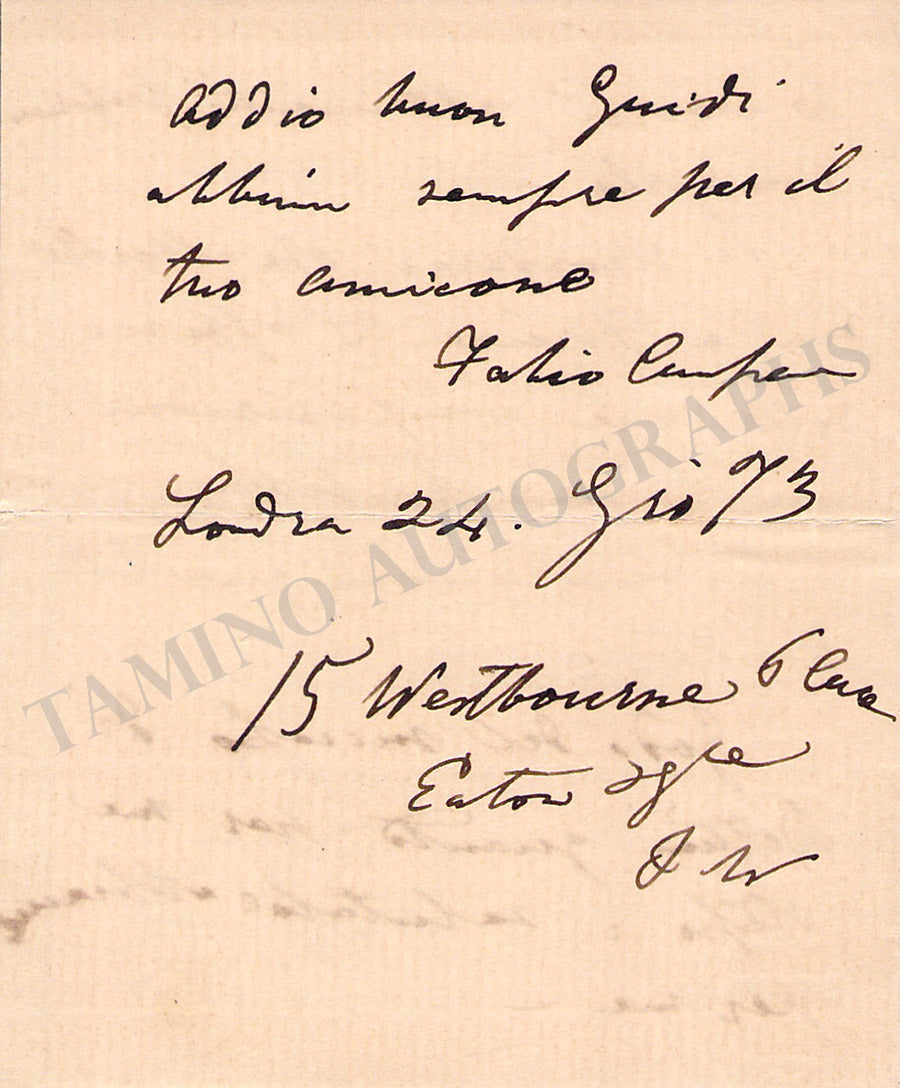 addio buon Guidi
abbimi sempre per il
tuo amicone
Fabio Campana
Londra 24. Giò 73
15 Westbourne Place
Eaton Sqre
S W
TAMINO AUTOGRAPHS